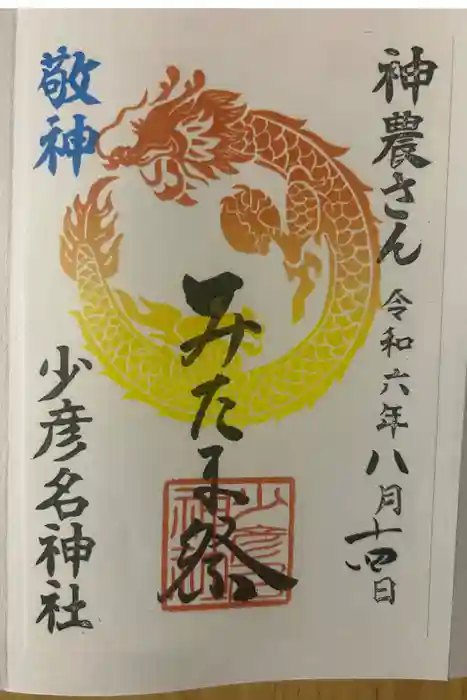 神農さん 令和六年八月十四日
みたま祭
敬神
少彦名神社